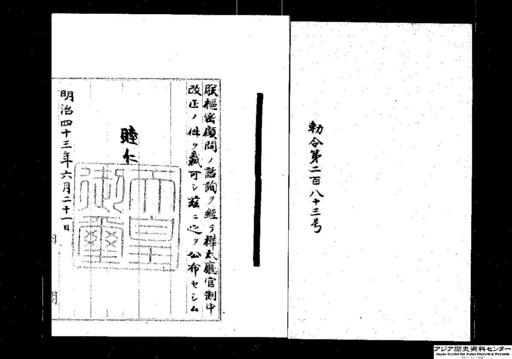 勅令第二百八十三号
朕枢密顧問ノ諮詢ヲ経テ樺太庁官制中
改正ノ件ヲ裁可シ茲ニ之ヲ公布セシム
睦仁
天皇
御璽
明治四十三年六月二十一日
アジア歴史資料センター
Japan Center for Asian Historical Records